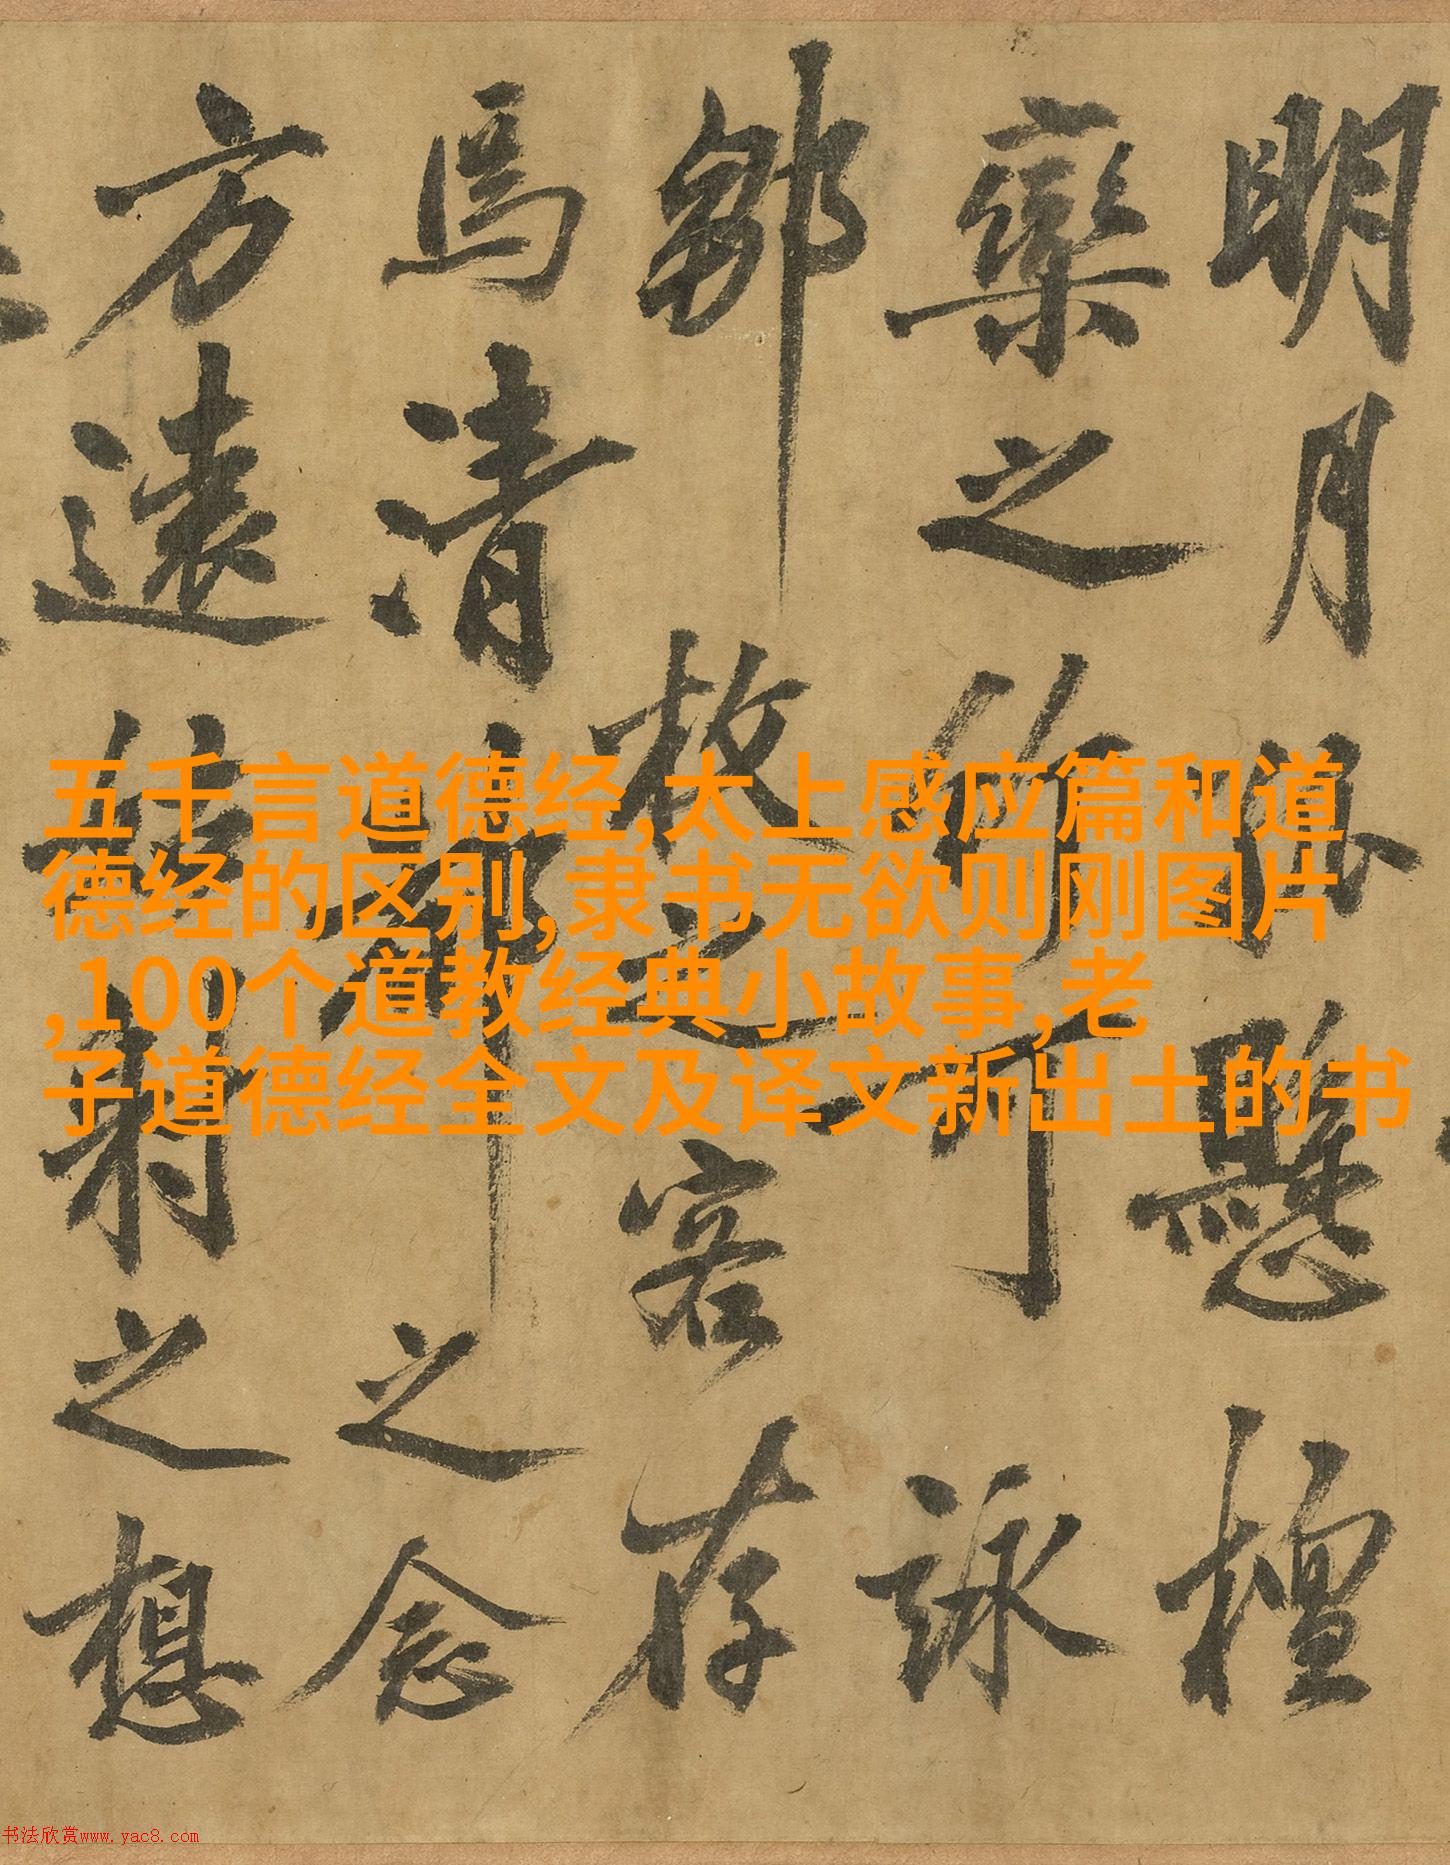 明月懸檀
欒之作可詠
鄒枚之客存
焉清之念
方遠姑射之想
五千言道德经,太上感应篇和道
德经的区别,隶书无欲则刚图片
,100个道教经典小故事,老
子道德经全文及译文新出土的书
书法欣赏www.yac8.com